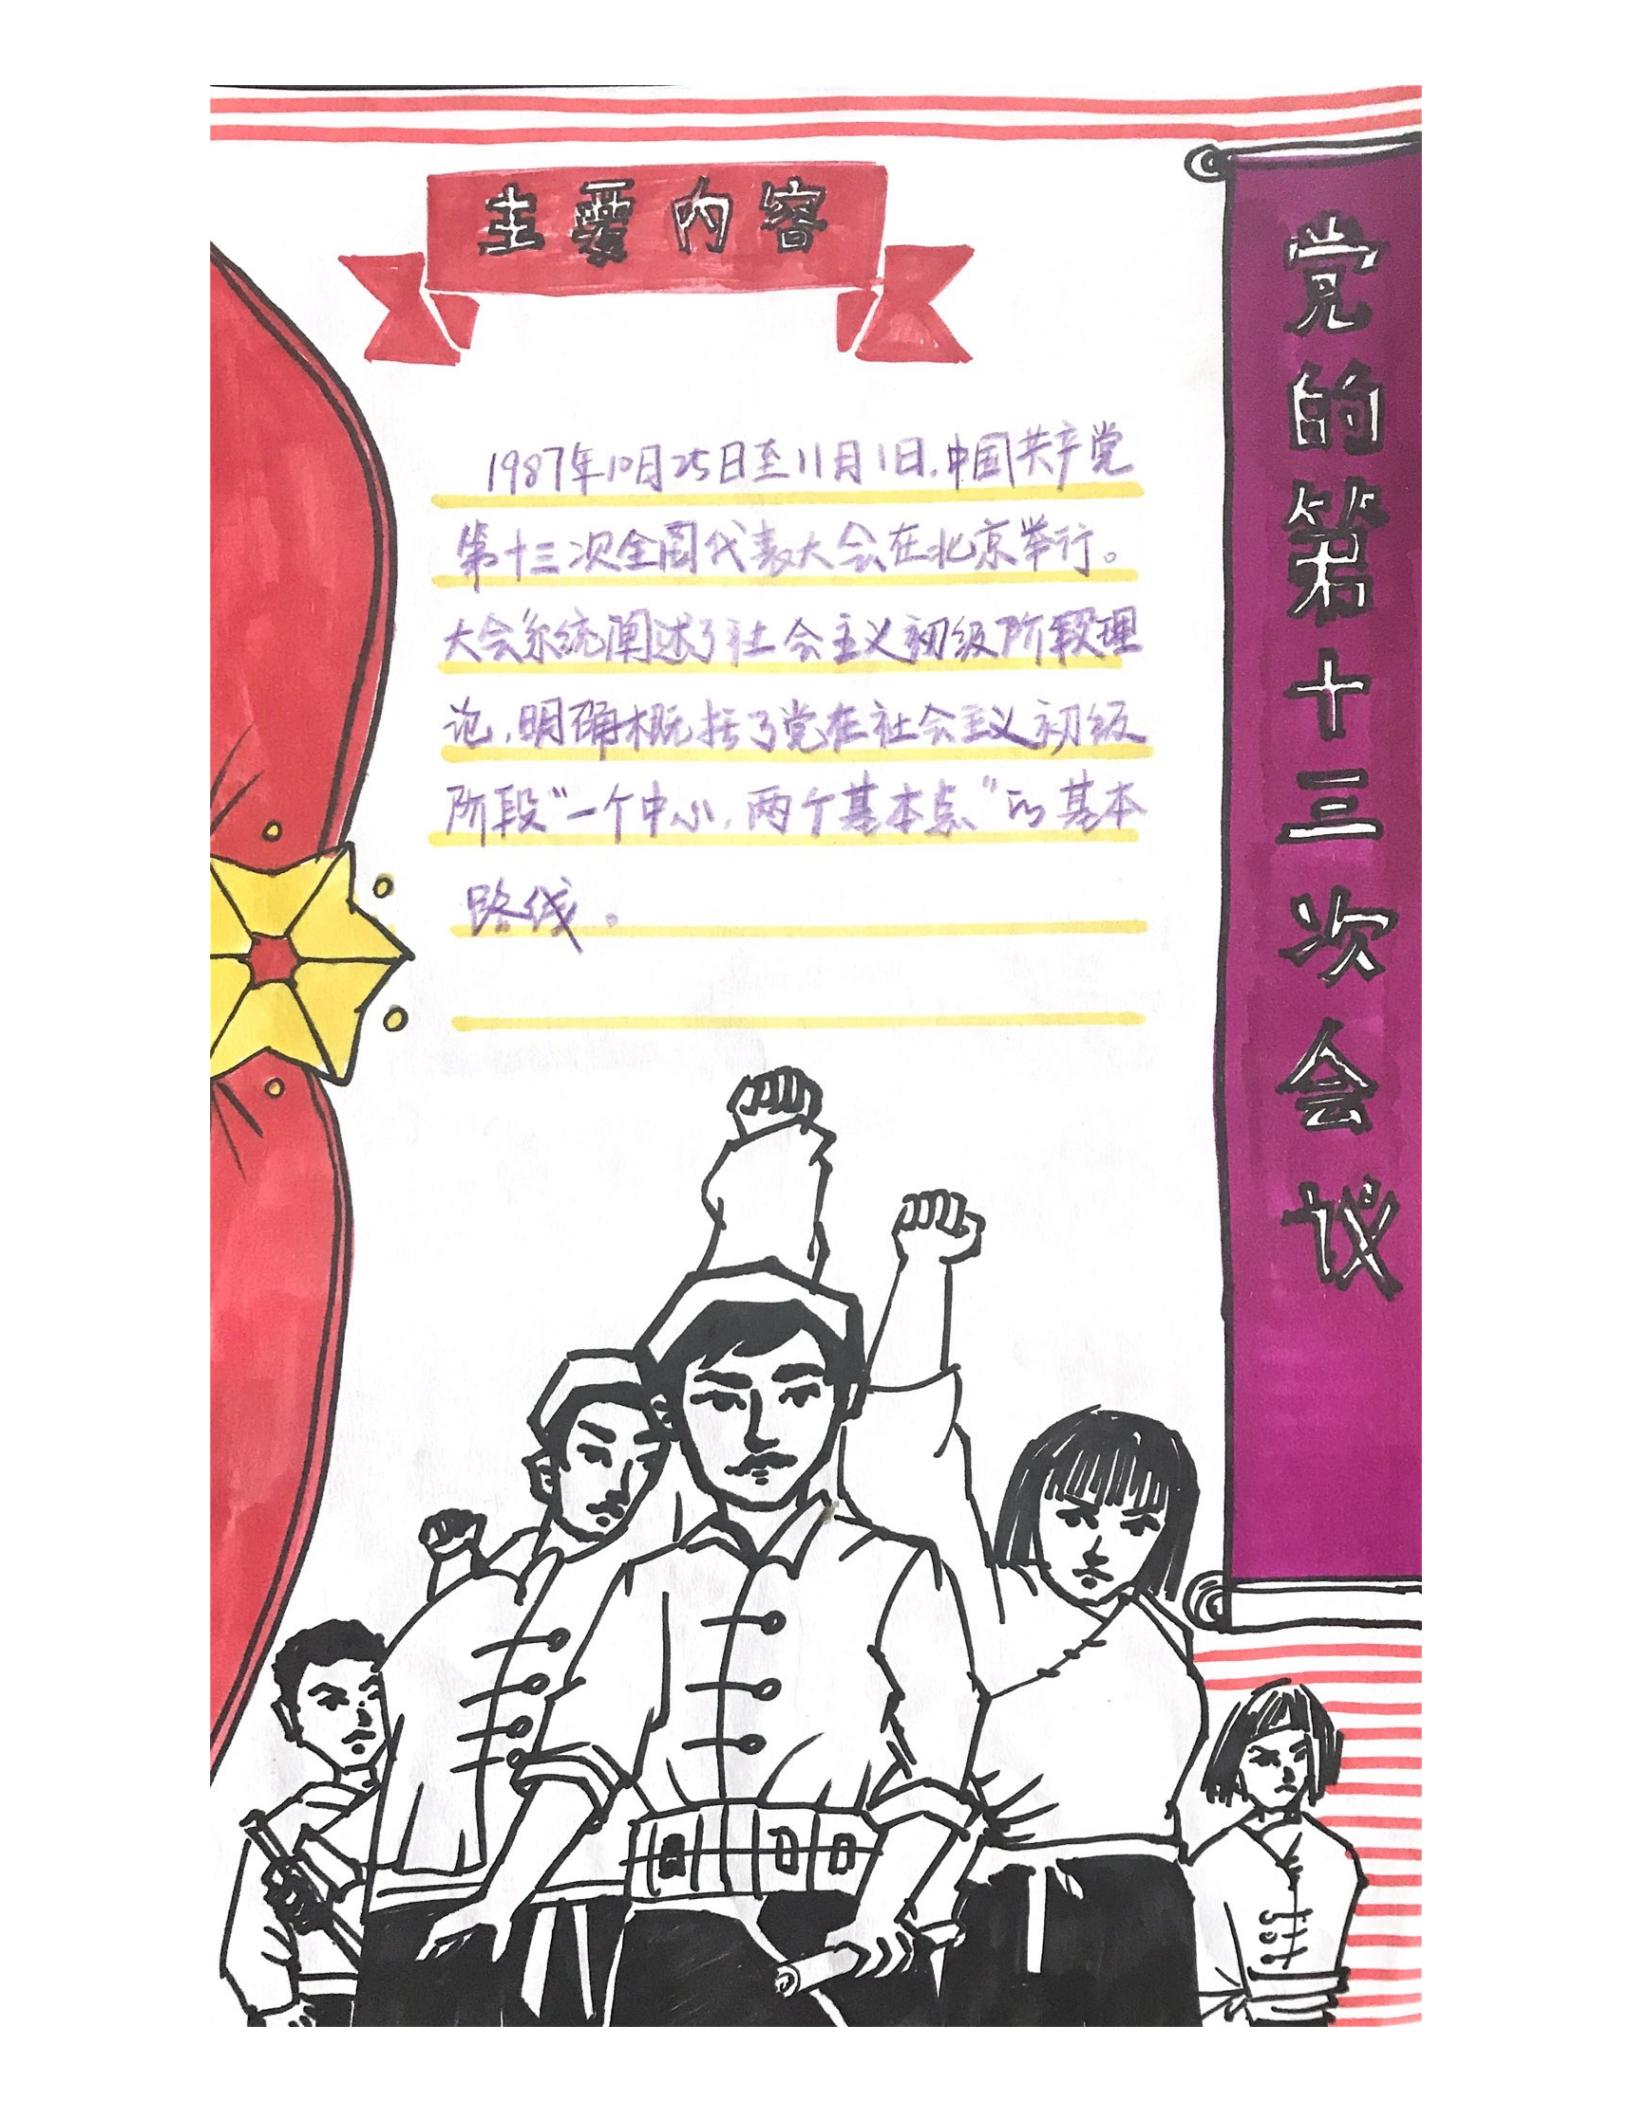 主要内容
1987年10月25日至11月1日,中国共产党
第十三次全国代表大会在北京举行。
大会系统阐述了社会主义初级阶段理
论,明确概括了党在社会主义初级
阶段“一个中心,两个基本点”的基本
路线。
党的第十三次会议